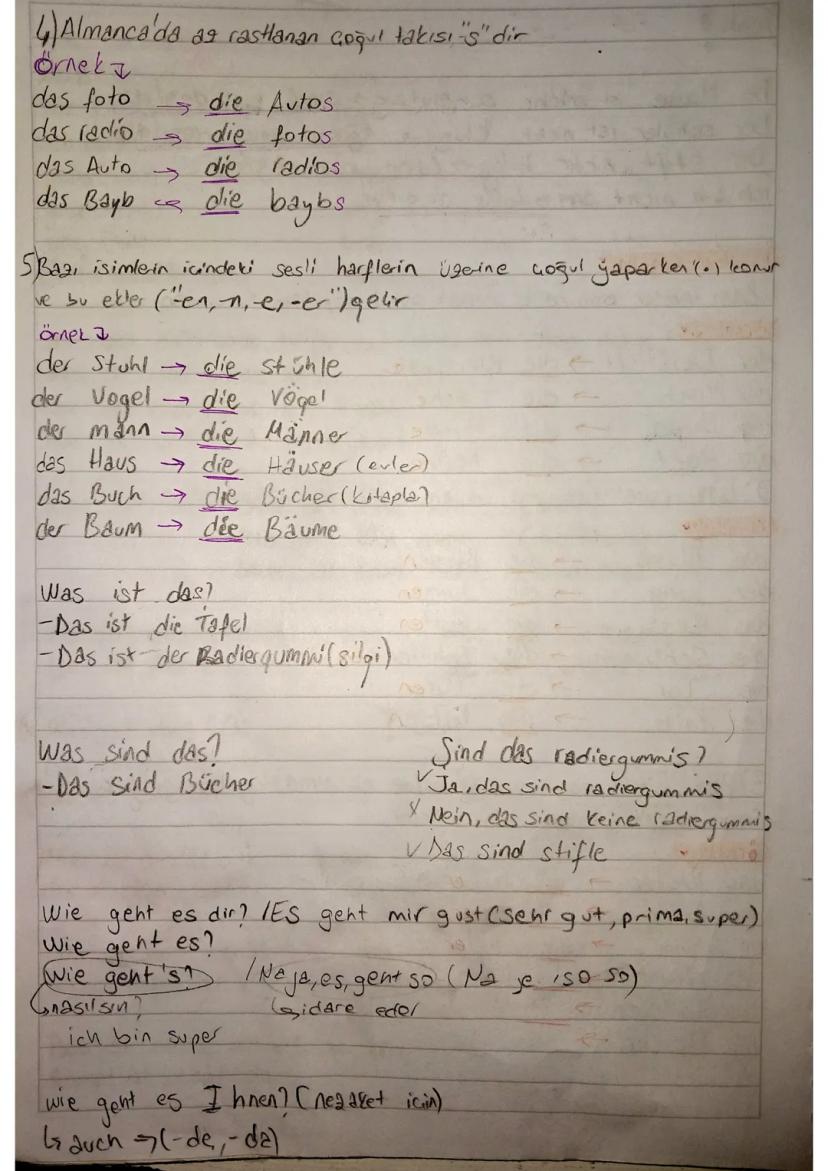 4) Almanca'da az rastlanan çoğul takısı "s" dir
Örnek ↴
das foto → die Autos
das radio → die fotos
das Auto → die radios
das Bayb → die baybs
5) Bazı isimlerin icindeki sesli harflerin üzerine çoğul yaparken (..) konur
ve bu ekler ("-en, -n, -e, -er") gelir
örnek ↴
der Stuhl → die stühle
der Vogel → die Vögel
der mann → die Männer
das Haus → die Häuser (evler)
das Buch → die Bücher (kitaplar)
der Baum → die Bäume
Was ist das?
-Das ist die Tafel
-Das ist der Radiergummi (silgi)
Was sind das?
-Das sind Bücher
Sind das radiergummis?
√ Ja, das sind radiergummis
x Nein, das sind keine radiergummis
√ Das sind stifle
Wie geht es dir? / ES geht mir gust (sehr gut, prima, super)
Wie geht es?
Wie geht's? / Na ja, es, geht so (Na je, so so)
↳ nasılsın? ↳ idare eder
ich bin super
wie geht es Ihnen? (nezaket icin)
↳ auch → (-de, -da)